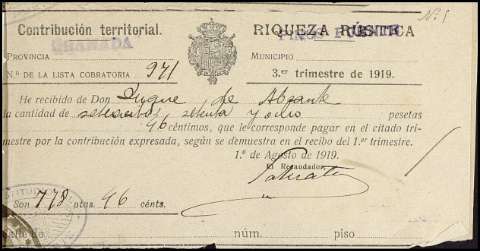 Nº 1
Contribución territorial. RIQUEZA RÚSTICA
PROVINCIA GRANADA MUNICIPIO PINOS PUENTE
N.º DE LA LISTA COBRATORIA 971 3.er trimestre de 1919.
He recibido de Don Duque de Abrante
la cantidad de setecientas setenta y ocho pesetas
96 céntimos, que le corresponde pagar en el citado tri-
mestre por la contribución expresada, según se demuestra en el recibo del 1.er trimestre.
1.º de Agosto de 1919.
El Recaudador,
Son 778 ptas. 96 cénts.
calle de núm. piso